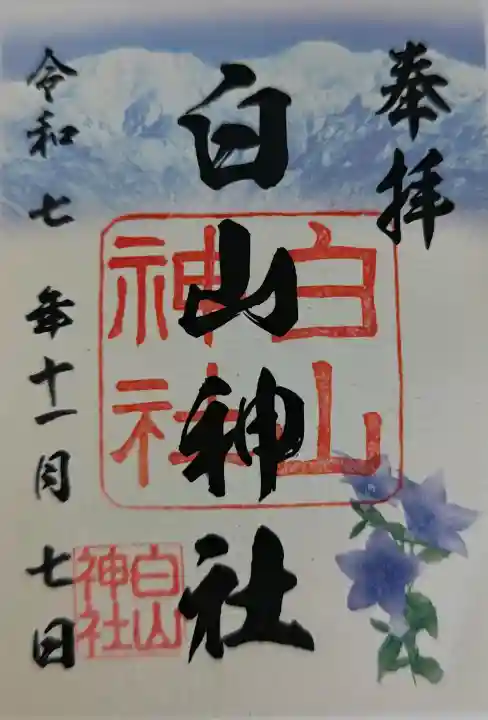 奉拝
白山神社
白山神社
令和七年十一月七日
白山神社